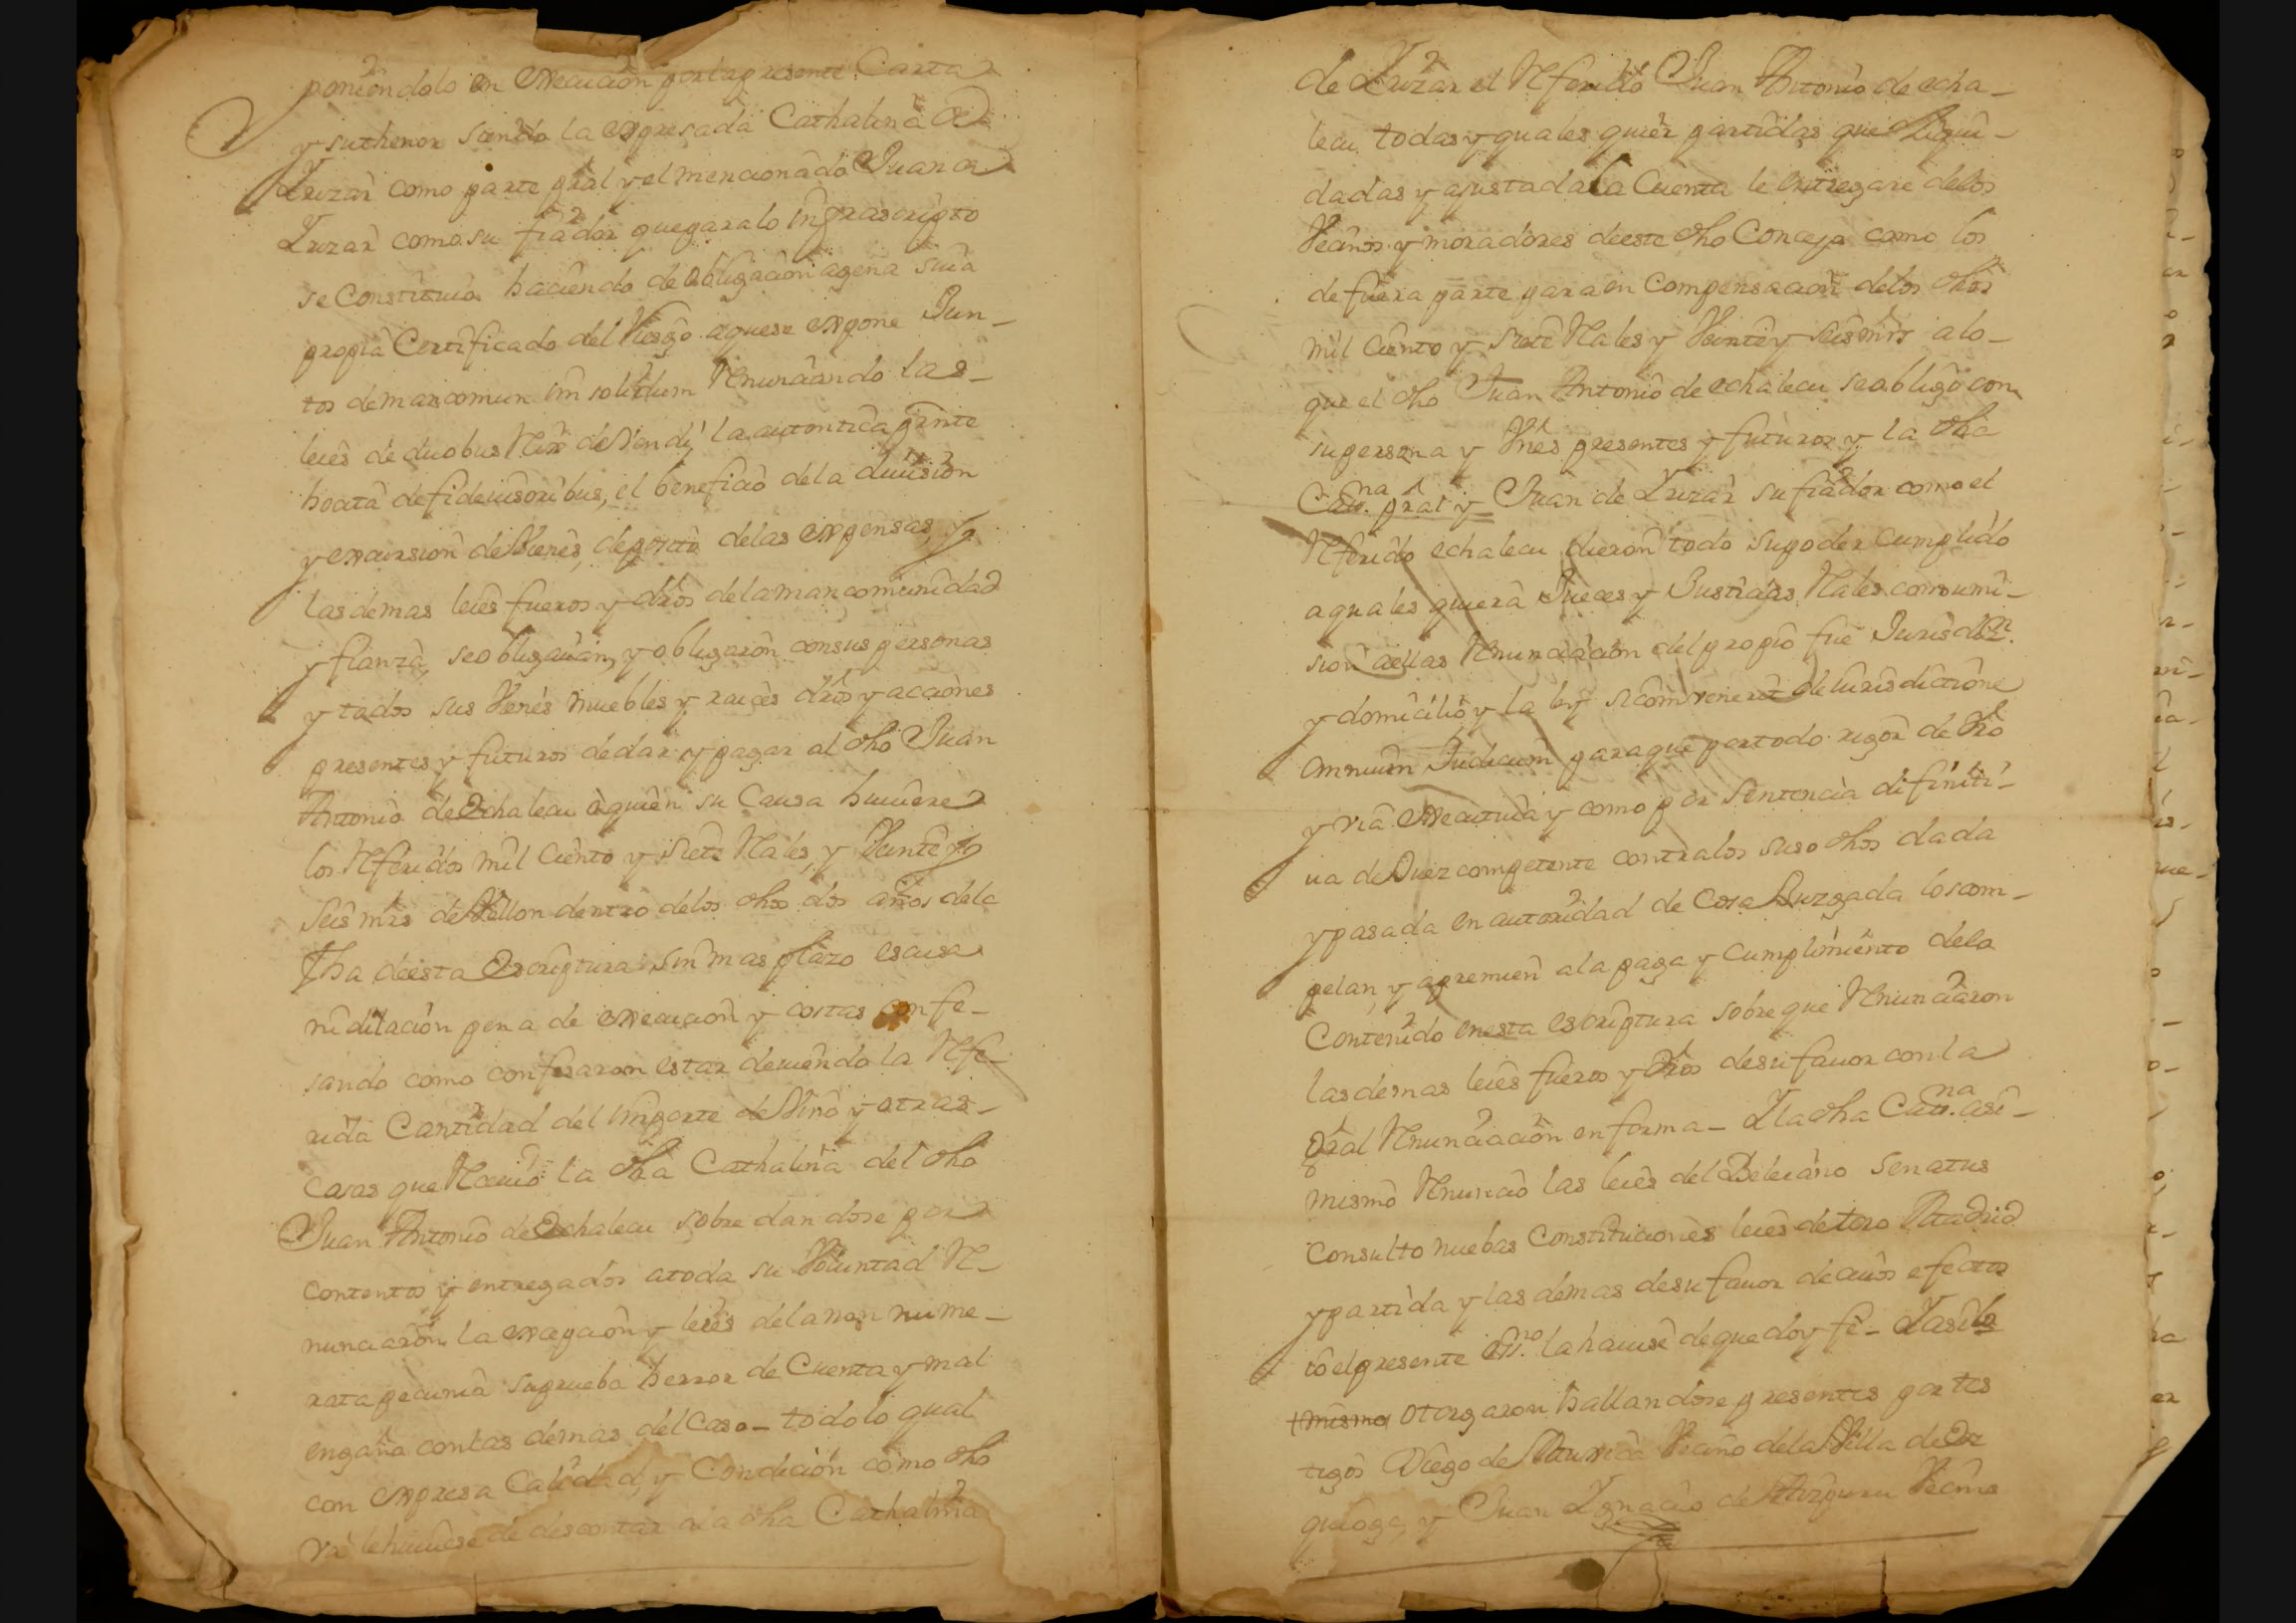 poniendolo en execucion por la presente Carta
y su thenor siendo la expresada Cathalina de
Luzar como parte pral y el mencionado Juan de
Luzar como su fiador que para lo infrascripto
se Constituia haciendo de obligacion agena suia
propia Certificado del Riesgo a que se expone Jun-
tos de mancomun im solidum Renunciando las-
leies de duobus Rex devendi, la autentica presente
hocita de fideiusoribus, el beneficio dela diuision
y excursion de Vienes, deposito delas expensas, y
las demas leies fueros y dros dela mancomunidad
y fianza, se obligauan, y obligaron con sus personas
y todos sus Vienes muebles y raices dros y acciones
presentes y futuros de dar y pagar al dho Juan
Antonio de Echalecu o quien su Causa huuiere
los Referidos mil Ciento y Siete Rales, y Veinte y
Seis mrs de Vellon dentro delos dhos dos años dela
fha de esta Escriptura sin mas plazo escusa
ni dilacion pena de execucion y costas confe-
sando como confesaron estar deuiendo la Refe-
rida Cantidad del importe de Vino y otras-
cosas que Reciuio la dha Cathalina del dho
Juan Antonio de Echalecu sobre dandose por
contentos y entregados a toda su Voluntad Re-
nunciaron la excepcion y leies dela non nume-
rata pecunia su prueba herror de Cuenta y mal
engaña con las demas del Caso - todo lo qual
con expresa Calidad, y Condicion como dho
va le huuiese de descontar ala dha Cathalina
de Luzar el Referido Juan Antonio de echa-
lecu todas y quales quier partidas que Liqui-
dadas y ajustada la Cuenta le entregare delos
Vecinos y moradores de este dho Concejo como los
de fuera parte para en Compensacion delos dhos
mil Ciento y Siete Rales y Veinte y seis mrs a lo-
que el dho Juan Antonio de echalecu se obligo con
su persona y Vnes presentes y futuros y la dha
Catt.na pral y Juan de Luzar su fiador como el
Referido echalecu dieron todo su poder Cumplido
a quales quiera Jueces y Justicias Rales con sumi-
sion a ellas Renunciacion del propio fue Jurisdon
y domicilio y la ley si combenerit de iurisdictione
omnium Judicum para que por todo rigor de dro
y via executiva y como por Sentencia difiniti-
ua de Juez competente contra los suso dhos dada
y pasada en autoridad de Cosa Juzgada los com-
pelan, y apremien ala paga y Cumplimiento dela
Contenido en esta escriptura sobre que Renunciaron
las demas leies fueros y dros de su fauor con la
Gral Renunciacion en forma - Y la dha Catt.na asi-
mismo Renuncio las leies del Beleiano Senatus
Consulto nuebas Constituciones leies de toro Madrid
y partida y las demas de su fauor de cuios efectos
io el presente Esno. la hauise de que doy fe - Y asi lo
mismo otorgaron hallandose presentes por tes
tigos Diego de Vecino dela Villa de Or
y Juan Ygnacio de Vecino